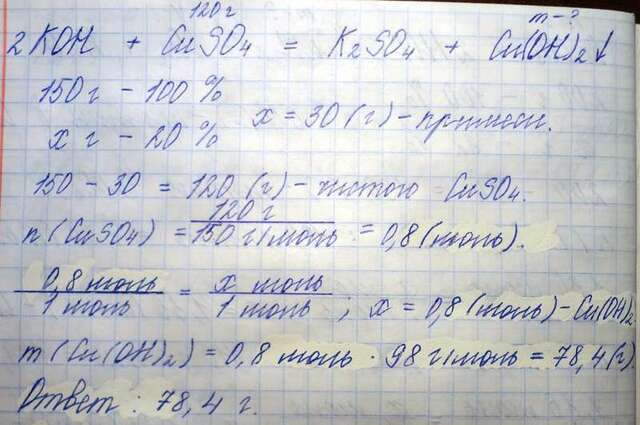 120 г m - ?
2KOH + CuSO4 = K2SO4 + Cu(OH)2↓
150 г - 100 %
x г - 20 % x = 30 (г) - примеси.
150 - 30 = 120 (г) - чистого CuSO4.
n (CuSO4) = 120 г / 150 г/моль = 0,8 (моль).
0,8 моль / 1 моль = x моль / 1 моль ; x = 0,8 (моль) - Cu(OH)2
m (Cu(OH)2) = 0,8 моль · 98 г/моль = 78,4 (г).
Ответ : 78,4 г.